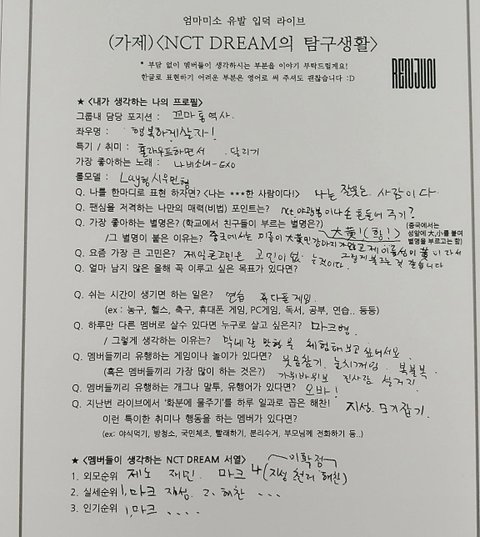 엄마미소 유발 입덕 라이브
(가제)<NCT DREAM의 탐구생활>
* 부담 없이 멤버들이 생각하시는 부분을 이야기 부탁드릴게요!
한글로 표현하기 어려운 부분은 영어로 써 주셔도 괜찮습니다 :D
RENJUN
★ <내가 생각하는 나의 프로필>
그룹내 담당 포지션 : 꼬마 통역사.
좌우명 : 행복하게살자!
특기 / 취미 : 훌라우프하면서 달리기
가장 좋아하는 노래 : 나비소녀-EXO
롤모델 : Lay형 시우민형
Q. 나를 한마디로 표현 하자면? <나는 ***한 사람이다!> 나는 잘웃는 사람이다.
Q. 팬심을 저격하는 나만의 매력(비법) 포인트는? nct 야광봉이나 손 흔들어 주기?
Q. 가장 좋아하는 별명은? (학교에서 친구들이 부르는 별명은?) 大黃! (황!)
(중국에서는 성앞에 大,小를 붙여 별명을 부르고는 함)
/그 별명이 붙은 이유는? 중국에서는 제 이름 성이 黃 이라서 그렇게 부르는 것 같습니다
Q. 요즘 가장 큰 고민은? 제일큰고민은 고민이 없는것이다.
Q. 얼마 남지 않은 올해 꼭 이루고 싶은 목표가 있다면?
Q. 쉬는 시간이 생기면 하는 일은? 연습 폭다폰 게임.
(ex : 농구, 헬스, 축구, 휴대폰 게임, PC게임, 독서, 공부, 연습.. 등등)
Q. 하루만 다른 멤버로 살수 있다면 누구로 살고 싶은지? 마크형.
/ 그렇게 생각하는 이유는? 막내란 맏형을 체험해보고 싶어서요.
Q. 멤버들끼리 유행하는 게임이나 놀이가 있다면? 웃음참기. 눈치게임. 복불복
(혹은 멤버들끼리 가장 많이 하는 것은?) 가위바위보 진사람
Q. 멤버들끼리 유행하는 개그나 말투, 유행어가 있다면? 오바!
Q. 지난번 라이브에서 '화분에 물주기'를 하루 일과로 꼽은 해찬! 지성. 모기잡기.
이런 특이한 취미나 행동을 하는 멤버가 있다면?
(ex: 야식먹기, 방청소, 국민체조, 빨래하기, 분리수거, 부모님께 전화하기 등..)
★ <멤버들이 생각하는 NCT DREAM 서열>
1. 외모순위 제노 재민. 마크 4 (지성 천러 해찬) 미확정
2. 실세순위 1, 마크 지성. 2. 해찬 ...
3. 인기순위 1, 마크 ....